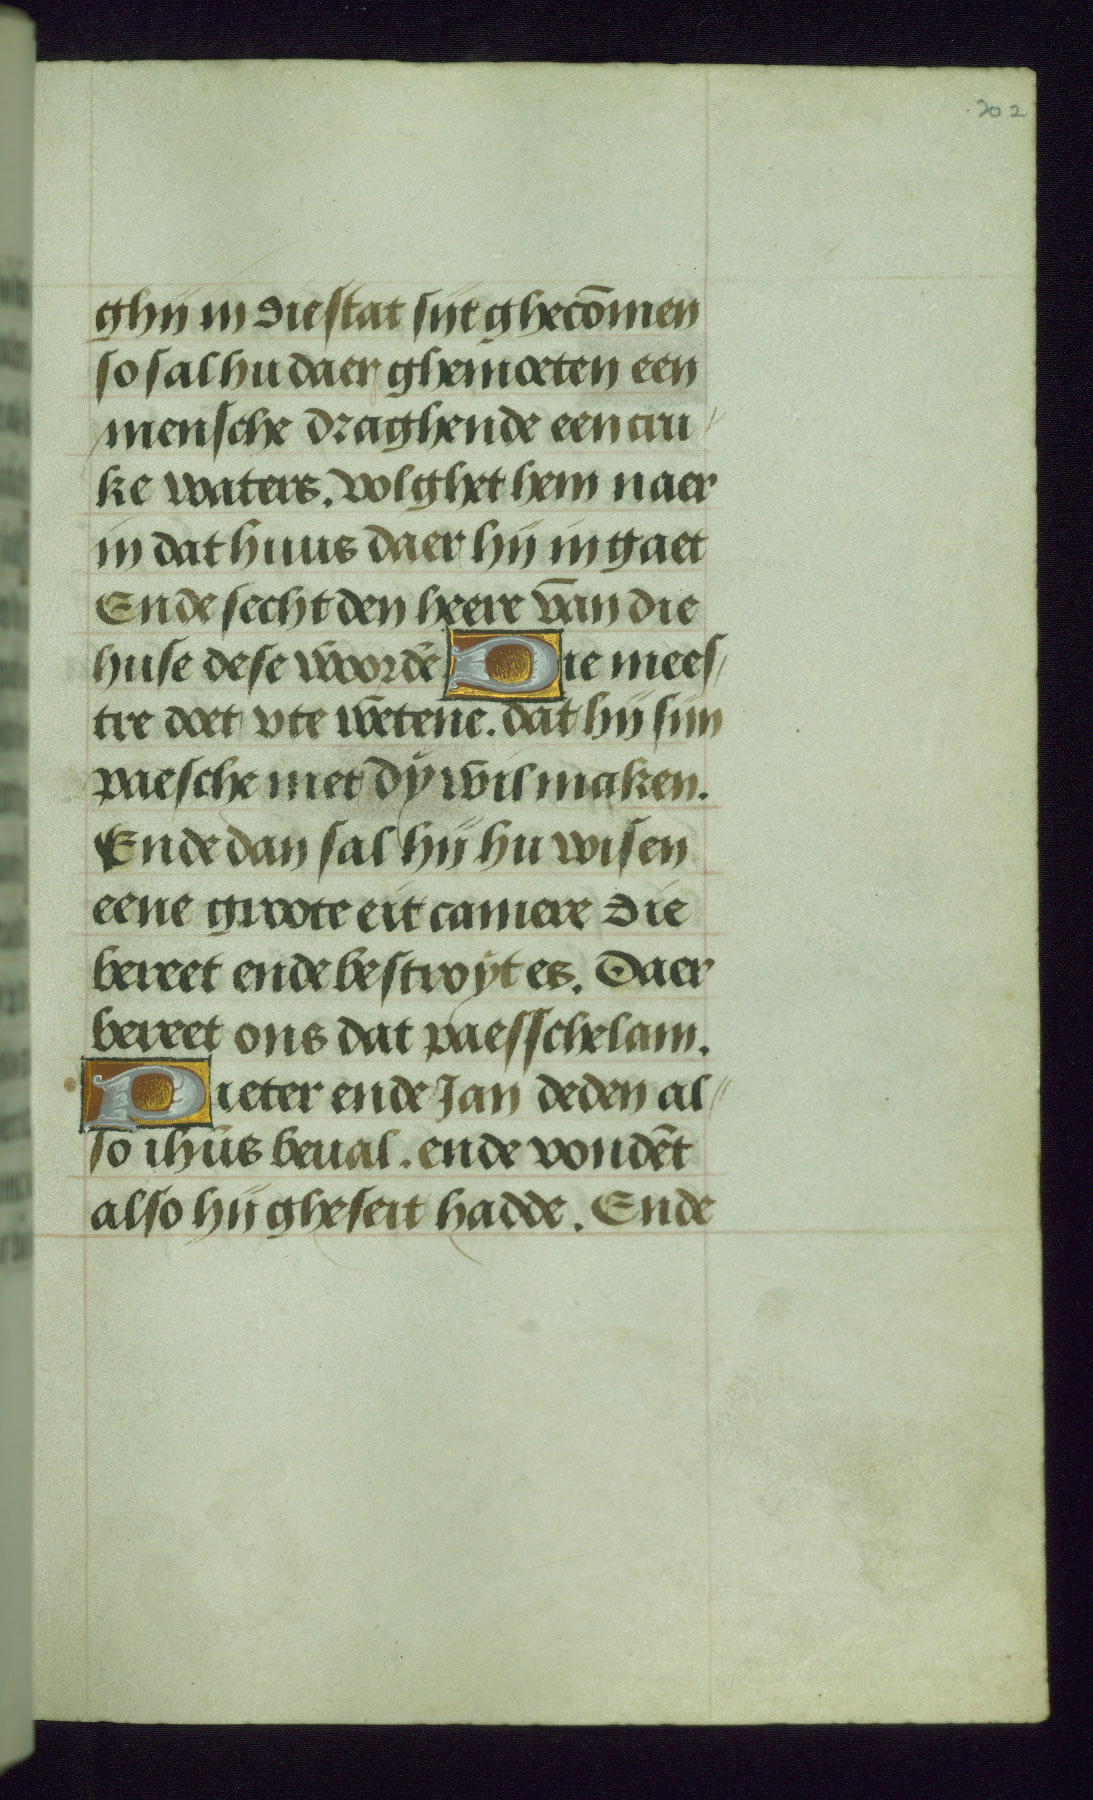 202
ghij in die stat sijt ghecōmen
so sal hu daer ghemoeten een
mensche draghende een cru
ke waters. volghet hem naer
in dat huus daer hij in gaet
Ende secht den heere van die
huse dese woordē Die mees
tre doet v te wetene. dat hij sijn
paesche met dy wil maken.
Ende dan sal hij hu wisen
eene groote eit camere die
bereet ende bestroyt es. Daer
bereet ons dat paesschelam.
Pieter ende Jan deden al
so ihūs beual. ende vondēt
also hij gheseit hadde. Ende